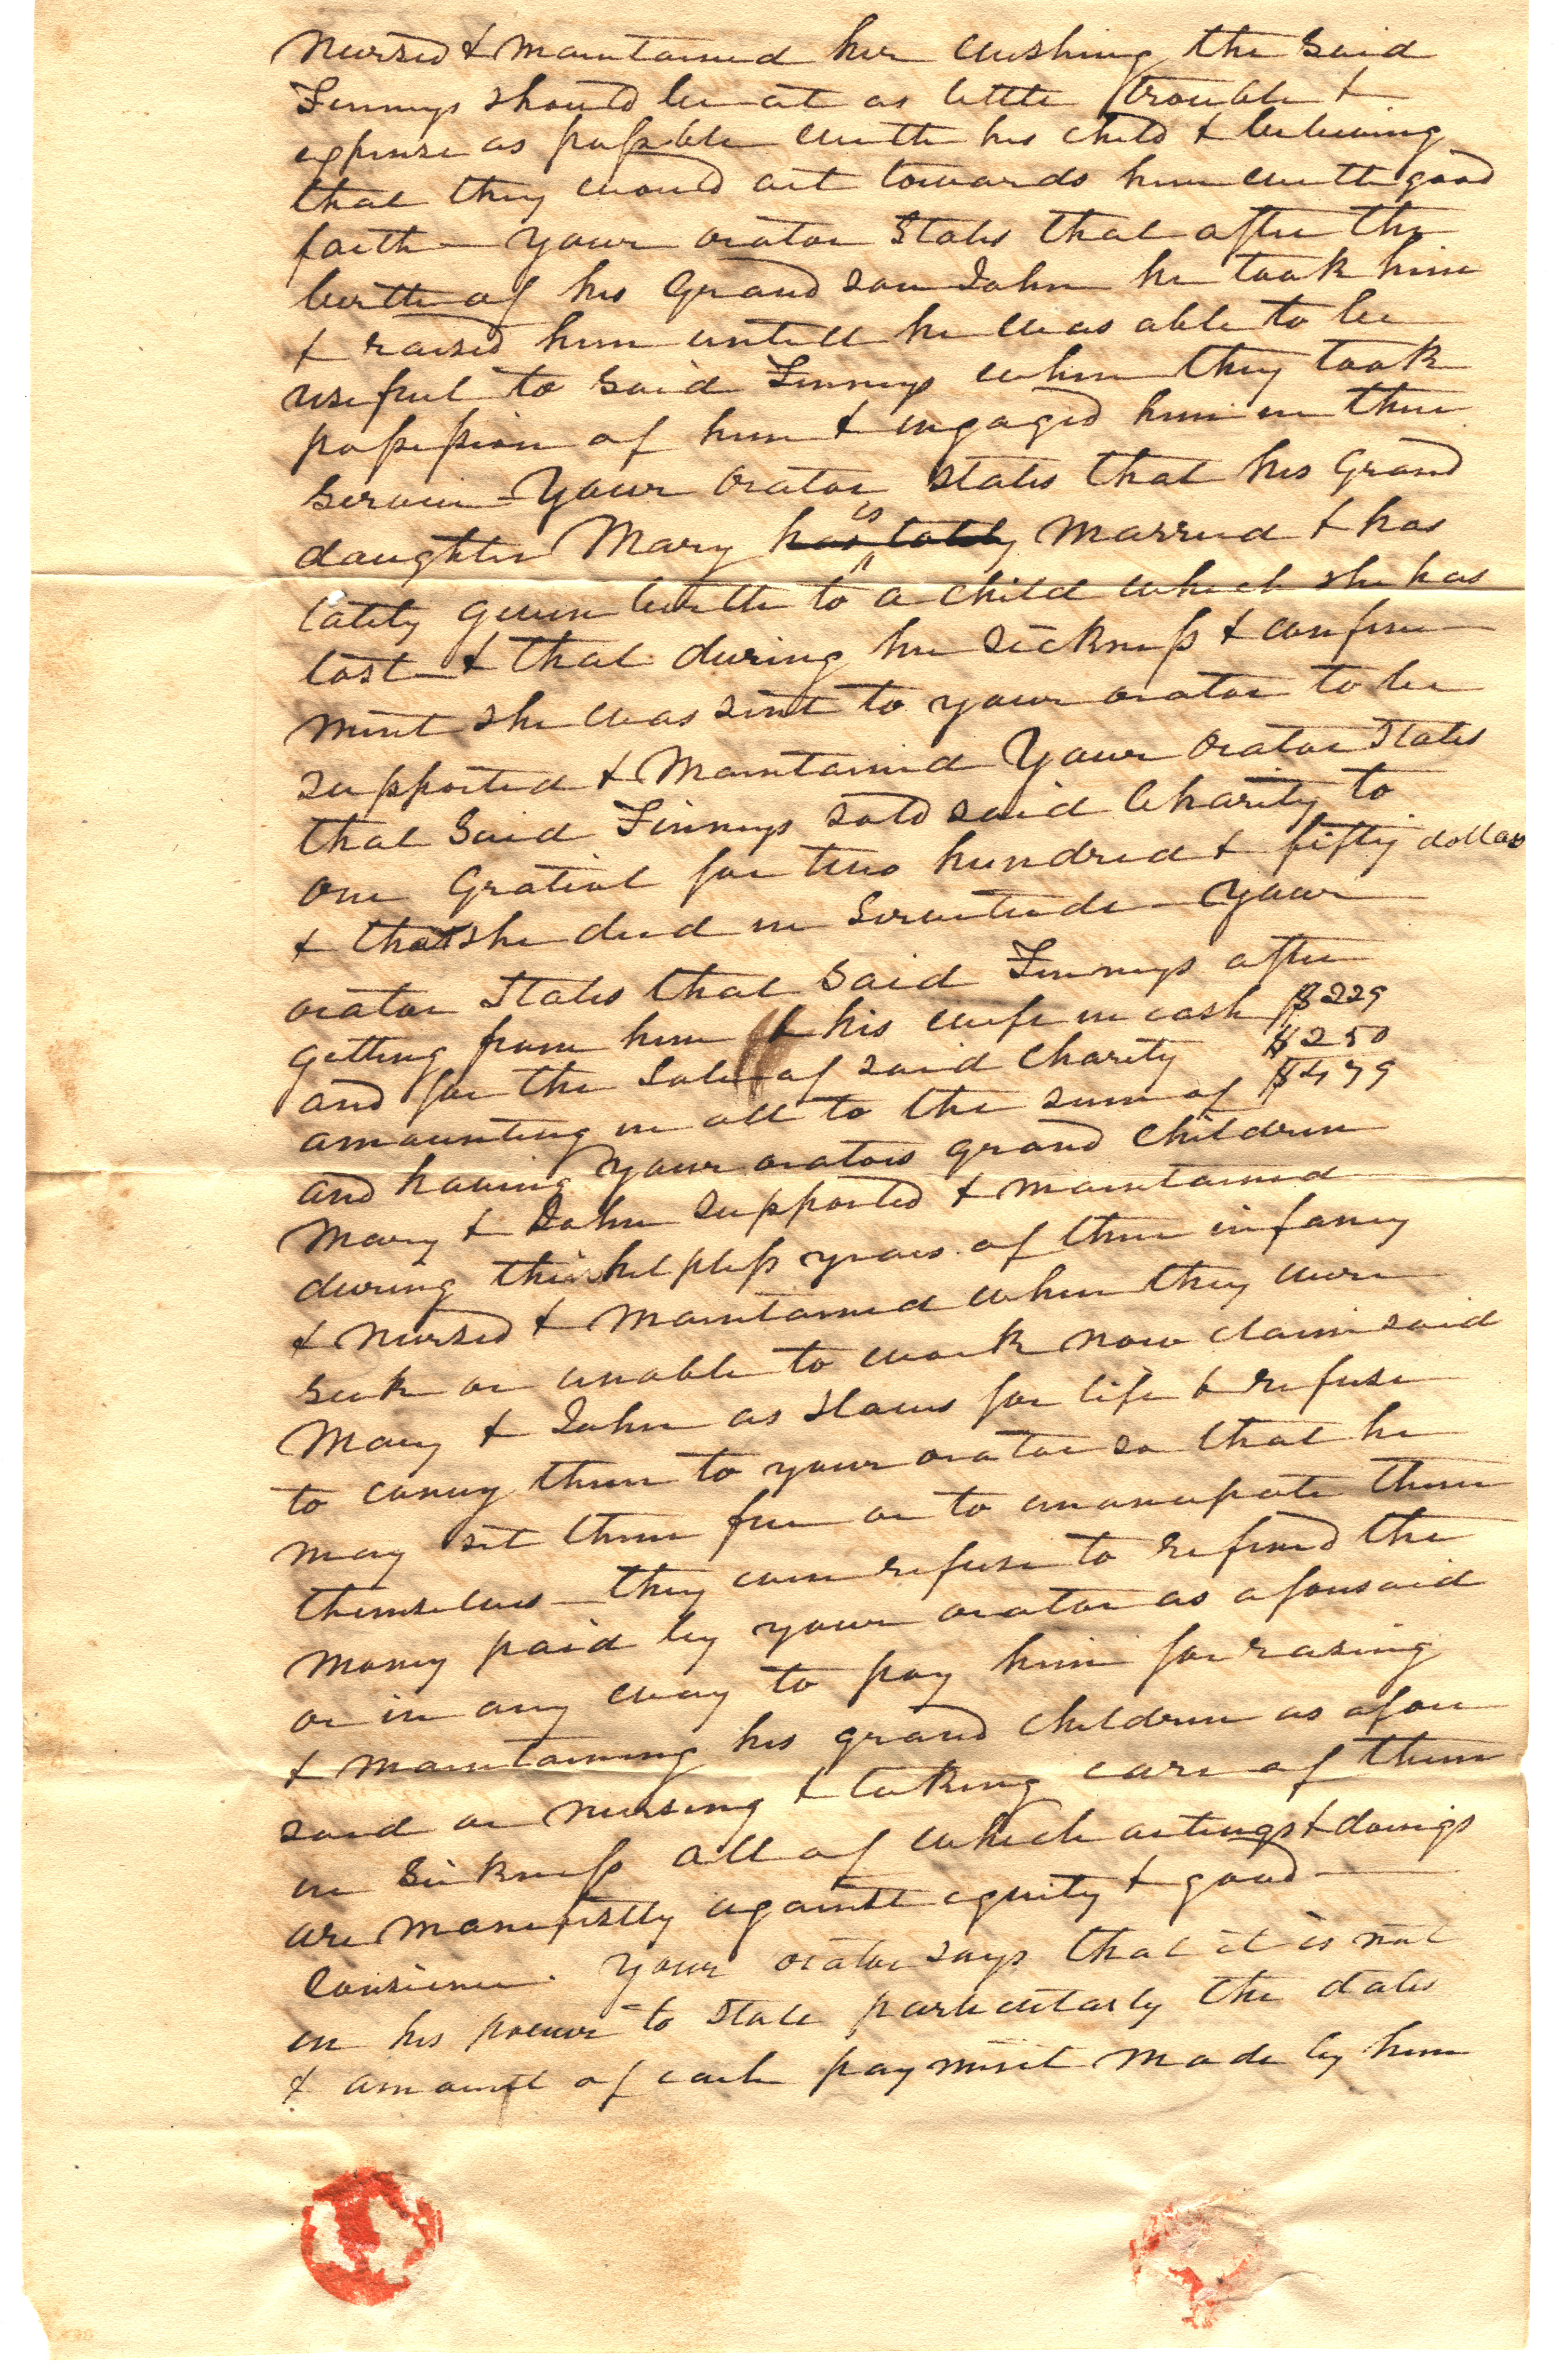 nursed & maintained her wishing the said
Finneys should be at as little trouble &
expense as possible with his child & believing
that they would act towards him with good
faith — your orator states that after the
birth of his Grand son John he took him
& raised him untill he was able to be
useful to said Finneys when they took
possession of him & engaged him in their
service — Your orator states that his Grand
daughter Mary has lately is married & has
lately given birth to a child which she has
lost — & that during her sickness & confine
ment she was sent to your orator to be
supported & maintained Your orator states
that said Finneys sold said Charity to
one Gratiot for two hundred & fifty dollars
& that she died in servitude — Your
orator states that said Finneys after
getting from him & his wife in cash $229
and for the sale of said Charity $250
amounting in all to the sum of $479
and having your orators grand children
Mary & John supported & maintained
during their helpless years of their infancy
& nursed & maintained when they were
sick or unable to work now claim said
Mary & John as slaves for life & refuse
to convey them to your orator so that he
may set them free or to emancipate them
themselves — they even refuse to refund the
money paid by your orator as aforesaid
or in any way to pay him for rasing
& maintaining his grand children as afore
said or nursing & taking care of them
in sickness all of which actings & doings
are manifestly against equity & good
Consience. Your orator says that it is not
in his power to state particularly the dates
& amount of each payment made by him